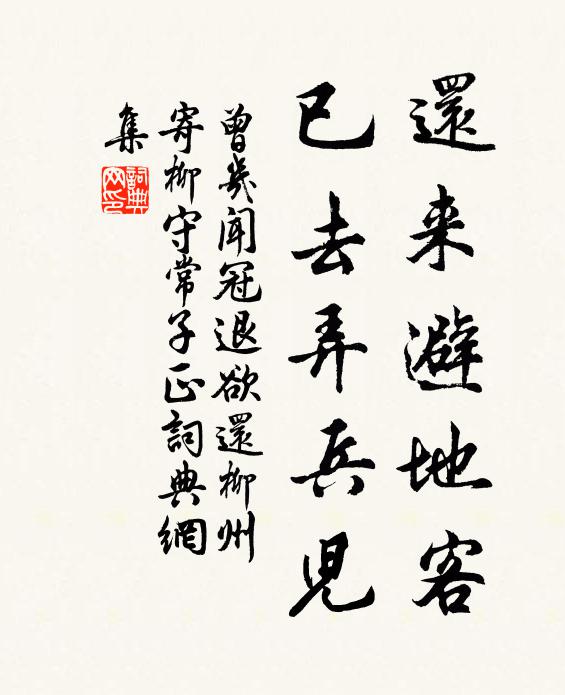 還来避地客
已去弄兵児
曾幾聞冠退欲還柳州
寄柳守常子正詞典網
集
詞典
网印